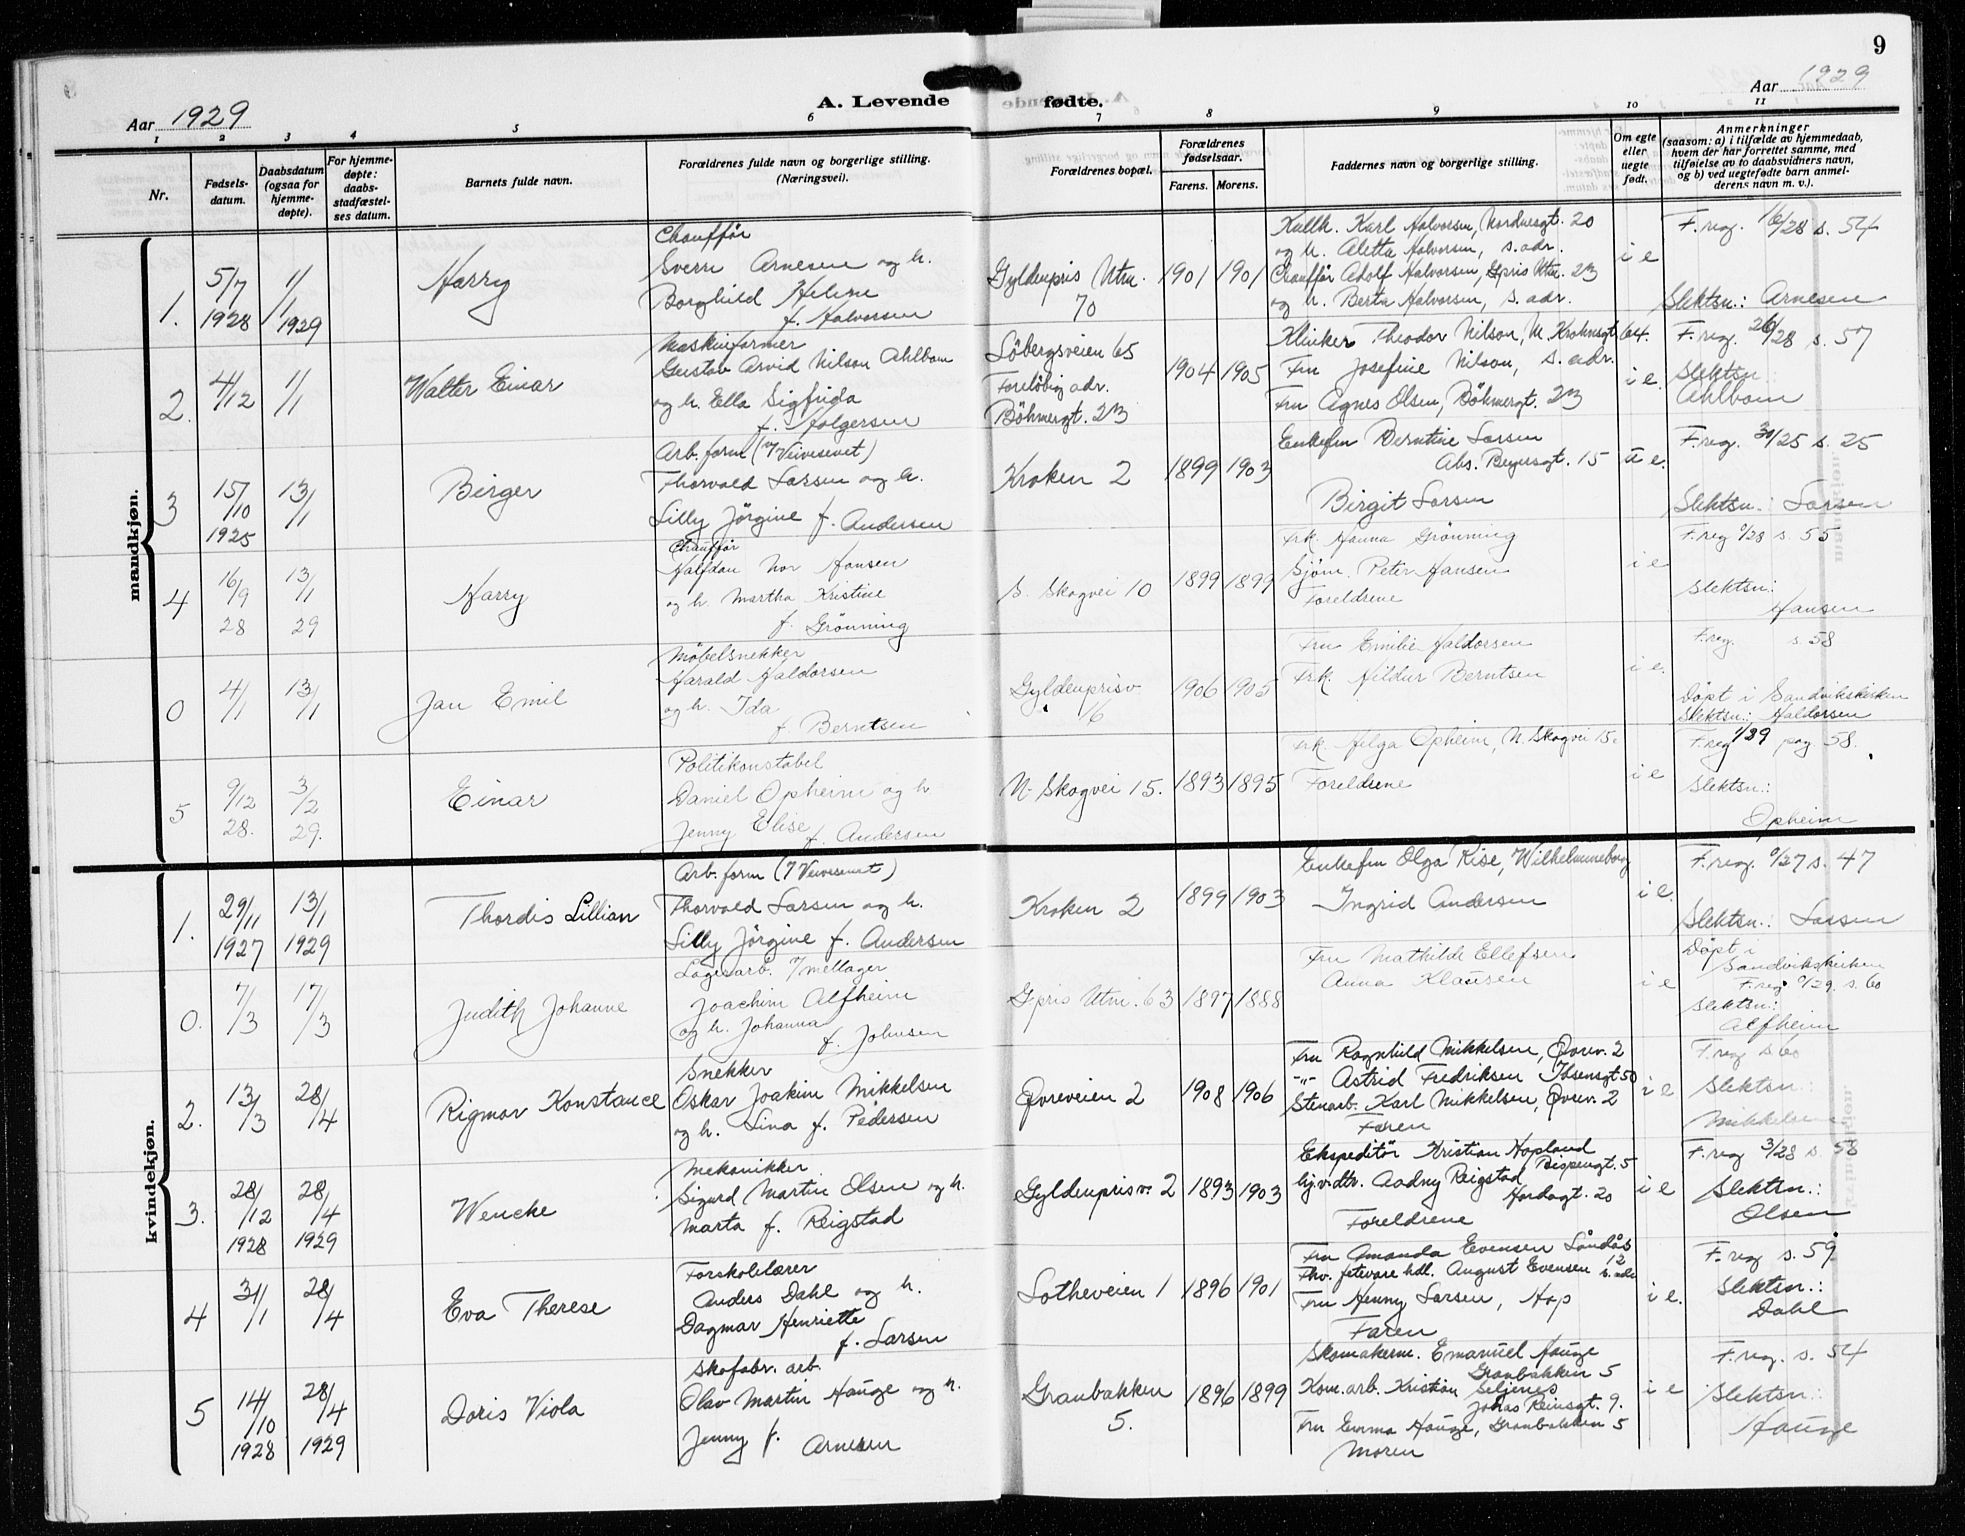 9
Aar 1929
A. Levende fødte.
Aar 1929
1 2 3 4 5 6 7 8 9 10 11
Nr.
Fødsels-
datum.
Daabsdatum
(ogsaa for
hjemme-
døpte).
For hjemme-
døpte:
daabs-
stadfæstel-
ses datum.
Barnets fulde navn.
Forældrenes fulde navn og borgerlige stilling.
(Næringsvei).
Forældrenes bopæl.
Forældrenes
fødselsaar.
Farens. Morens.
Faddernes navn og borgerlige stilling.
Om egte
eller
uegte
født.
Anmerkninger
(saasom: a) i tilfælde av hjemmedaab,
hvem der har forrettet samme, med
tilføielse av to daabsvidners navn,
og b) ved uegtefødte barn anmel-
derens navn m. v.).
mandkjøn.
1.
5/7
1928
1/1
1929
Harry
Chauffør
Sverre Arnesen og h.
Borghild Helene
f. Halvorsen
Gyldenpris Utm.
70
1901 1901
Kullh. Karl Halvorsen, Nordnesgt. 20
og h. Aletta Halvorsen, s. adr.
Chauffør Adolf Halvorsen, Gpris Utm.
og h. Berta Halvorsen, s. adr.
i e
F. reg. 16/28 s. 54
Slektsn.: Arnesen
2.
4/12
1/1
Walter Einar
Maskinformer
Gustav Arvid Nilson Ahlbom
og h. Ella Sigfrida
f. Holgersen
Löbergsveien 65
Foreløbig adr.
Böhmergt.
1904 1905
Klinker Theodor Nilson, M. Krohnsgt. 64.
Fru Josefine Nilson, s. adr.
Fru Agnes Olsen, Böhmergt.
i e.
F. reg. 26/28 s. 57
Slektsn.:
Ahlbom
3
15/10
1925
13/1
Birger
Arb. form (v/ Veivesenet)
Thorvald Larsen og h.
Lilly Jörgine f. Andersen
Kroken 2
1899 1903
Enkefru Berntine Larsen
Abs. Beyersgt. 15
Birgit Larsen
u e.
F. reg. 31/25 s. 25
Slektsn.: Larsen
4
16/9
28
13/1
29
Harry
Chauffør
Halfdan Nor Hansen
og h. Martha Kristine
f. Grönning
S. Skogvei 10
1899 1899
Frk. Hanna Grönning
Sjöm. Peter Hansen
Foreldrene
i e
F. reg /28 s. 55
Slektsn.:
Hansen
0
4/1
13/1
Jan Emil
Möbelsnekker
Harald Haldorsen
og h. Ida
f Berntsen
Gyldenprisv.
16
1906 1905
Fru Emilie Haldorsen
Frk. Hildur Berntsen
i e.
F. reg. s. 58
Döpt i Sandvikskirken
Slektsn.: Haldorsen
5
9/12
28.
3/2
29.
Einar
Politikonstabel
Daniel Opheim og h
Jenny Elise
f. Andersen
N. Skogvei 15.
1893 1895
Frk. Helga Opheim, N. Skogvei 15.
Foreldrene
i e
F. reg 1/29 pag 58.
Slektsn.:
Opheim
kvindekjøn.
1.
29/11
1927
13/1
1929
Thordis Lillian
Arb. form (v/ Veivesenet)
Thorvald Larsen og h.
Lilly Jörgine f. Andersen
Kroken 2
1899 1903
Enkefru Olga Rise, Wilhelmineborg
Ingrid Andersen
i e.
F. reg. /27 s. 47
Slektsn.: Larsen
0.
7/3
17/3
Judith Johanne
Lagerarb. v/ mellager
Joachim Alfheim
og h. Johanna
f. Johnsen
Gpris Utm. 63
1897 1888
Fru Mathilde Ellefsen
Anna Klausen
i e
Döpt i
Sandvikskirken
F. reg. /29 s. 60
Slektsn.:
Alfheim
2.
13/3
28/4
Rigmor Konstance
Snekker
Oskar Joakim Mikkelsen
og h. Lina f. Pedersen
Øvreveien 2
1908 1906
Fru Ragnhild Mikkelsen, Øvrev. 2
-"- Astrid Fredriksen Ibsensgt 50
Stenarb. Karl Mikkelsen, Øvrev. 2
Faren
i e
F. reg s 60
Slektsn.:
Mikkelsen
3.
28/12
1928
28/4
1929
Wencke
Mekanikker
Sigurd Martin Olsen og h.
Marta f. Reigstad
Gyldenprisv. 2
1893 1903
Ekspeditör Kristian Hopland
Bispengt. 5
hj.v.dtr. Aadny Reigstad
Hordagt. 20
Foreldrene
i e
F. reg 3/28 s. 58
Slektsn.:
Olsen
4
31/1
28/4
Eva Therese
Forskolelærer
Anders Dahl og h.
Dagmar Henriette
f. Larsen
Lotheveien 1
1896 1901
Fru Amanda Evensen Landås
12
Fhv. fetevare hdl. August Evensen s. adr
Fru Henny Larsen, Hop
Faren
i e.
F. reg s. 59
Slektsn.:
Dahl
5
14/10
1928
28/4
1929
Doris Viola
Skofabr. arb.
Olav Martin Hauge og h.
Jenny f. Arnesen
Granbakken
5.
1896 1899
Skomakerm. Emanuel Hauge
Granbakken 5
Kom. arb. Kristian Seljenes
Jonas Reinsgt. 9.
Fru Emma Hauge, Granbakken 5
Moren
i e
F. reg. s. 54
Slektsn.:
Hauge